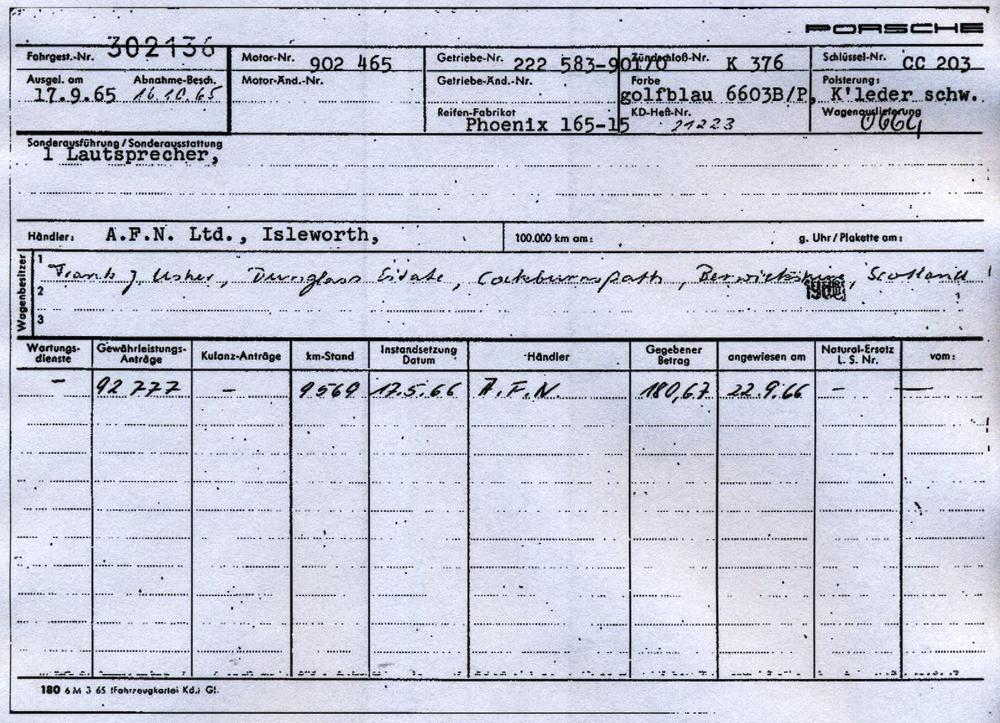 PORSCHE
Fahrgest.-Nr. 302136
Motor-Nr. 902 465
Getriebe-Nr. 222 583-901/0
Zündschloß-Nr. K 376
Schlüssel-Nr. CC 203
Ausgel. am Abnahme-Besch.
17.9.65 16.10.65
Motor-Änd.-Nr.
Getriebe-Änd.-Nr.
Farbe
golfblau 6603B/P,
Polsterung:
K'leder schw.
Reifen-Fabrikat
Phoenix 165-15
KD-Heft-Nr. 21223
Wagenauslieferung
Sonderausführung/Sonderausstattung
1 Lautsprecher,
Händler: A.F.N. Ltd., Isleworth,
100.000 km am:
g. Uhr/Plakette am:
Wagenbesitzer
1 Frank J. Usher, Dunglass Estate, Cockburnspath, Berwickshire, Scotland
2
3
Wartungs-dienste Gewährleistungs-Anträge Kulanz-Anträge km-Stand Instandsetzung Datum Händler Gegebener Betrag angewiesen am Natural-Ersatz L. S. Nr. vom:
– 92 777 – 9569 17.5.66 A.F.N. 180,67 22.9.66 – —
180 6 M 3 65 (Fahrzeugkartei Kd.) Gl.